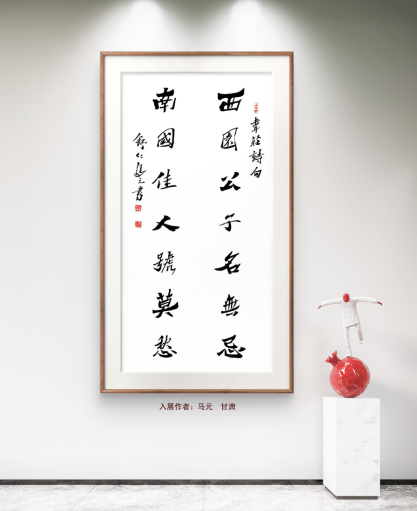 西園公子名無忌
韋莊詩句
南國佳人號莫愁
入展作者：马元　甘肃